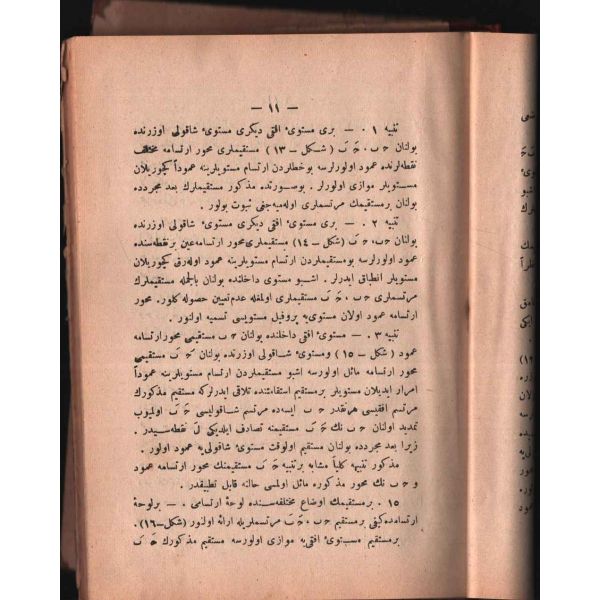 — ١١ —
تنبیه ١ . — بری مستوئ افقی دیگری مستوئ شاقولی اوزرنده
بولنان ح ب ، حَ بَ ( شکل – ١٣ ) مستقیملری محور ارتسامه مختلف
نقطه‌لرنده عمود اولورلرسه بو خطلردن ارتسام مستویلرینه عموداً کچوریلان
مستویلر موازی اولورلر . بوصورتده مذکور مستقیملرك بعد مجردده
بولنان برمستقیمك مرتسملری اوله‌میه‌جغی ثبوت بولور .
تنبیه ٢ . — بری مستوئ افقی دیگری مستوئ شاقولی اوزرنده
بولنان ح ب ، حَ بَ ( شکل – ١٤ ) مستقیملری محور ارتسامه عین بر نقطه‌سنده
عمود اولورلرسه بومستقیملردن ارتسام مستویلرینه عمود اوله‌رق کچوریلان
مستویلر انطباق ایدرلر . اشبو مستوی داخلنده بولنان بالجمله مستقیملرك
مرتسملری ح ب ، حَ بَ مستقیملری اولمغله عدم تعیین حصوله کلور . محور
ارتسامه عمود اولان مستوی‌یه پروفیل مستویسی تسمیه اولنور .
تنبیه ٣ . — مستوئ افقی داخلنده بولنان ح ب مستقیمی محور ارتسامه
عمود ( شکل – ١٥ ) ومستوئ شاقولی اوزرنده بولنان حَ بَ مستقیمی
محور ارتسامه مائل اولورسه اشبو مستقیملردن ارتسام مستویلرینه عموداً
امرار ایدیلان مستویلر برمستقیم استقامتنده تلاقی ایدرلرکه مستقیم مذکورك
مرتسم افقیسی هرنقدر ح ب ایسه‌ده مرتسم شاقولیسی حَ بَ اولمیوب
تمدید اولنان ح ب نك حَ بَ مستقیمنه تصادف ایلدیکی لَ نقطه‌سیدر .
زیرا بعد مجردده بولنان مستقیم اولوقت مستوئ شاقولی‌یه عمود اولور .
مذکور تنبیهه کلیاً مشابه برتنبیه حَ بَ مستقیمنك محور ارتسامه عمود
و ح ب نك محور مذکوره مائل اولمسی حالنه قابل تطبیقدر .
١٥ . برمستقیمك اوضاع مختلفه‌سنده لوحهٔ ارتسامی . — برلوحهٔ
ارتسامده کیفی برمستقیم ح ب ، حَ بَ مرتسملریله ارائه اولنور ( شکل–١٦ ) .
برمستقیم مستوئ افقی‌یه موازی اولورسه مستقیم مذکورك حَ بَ